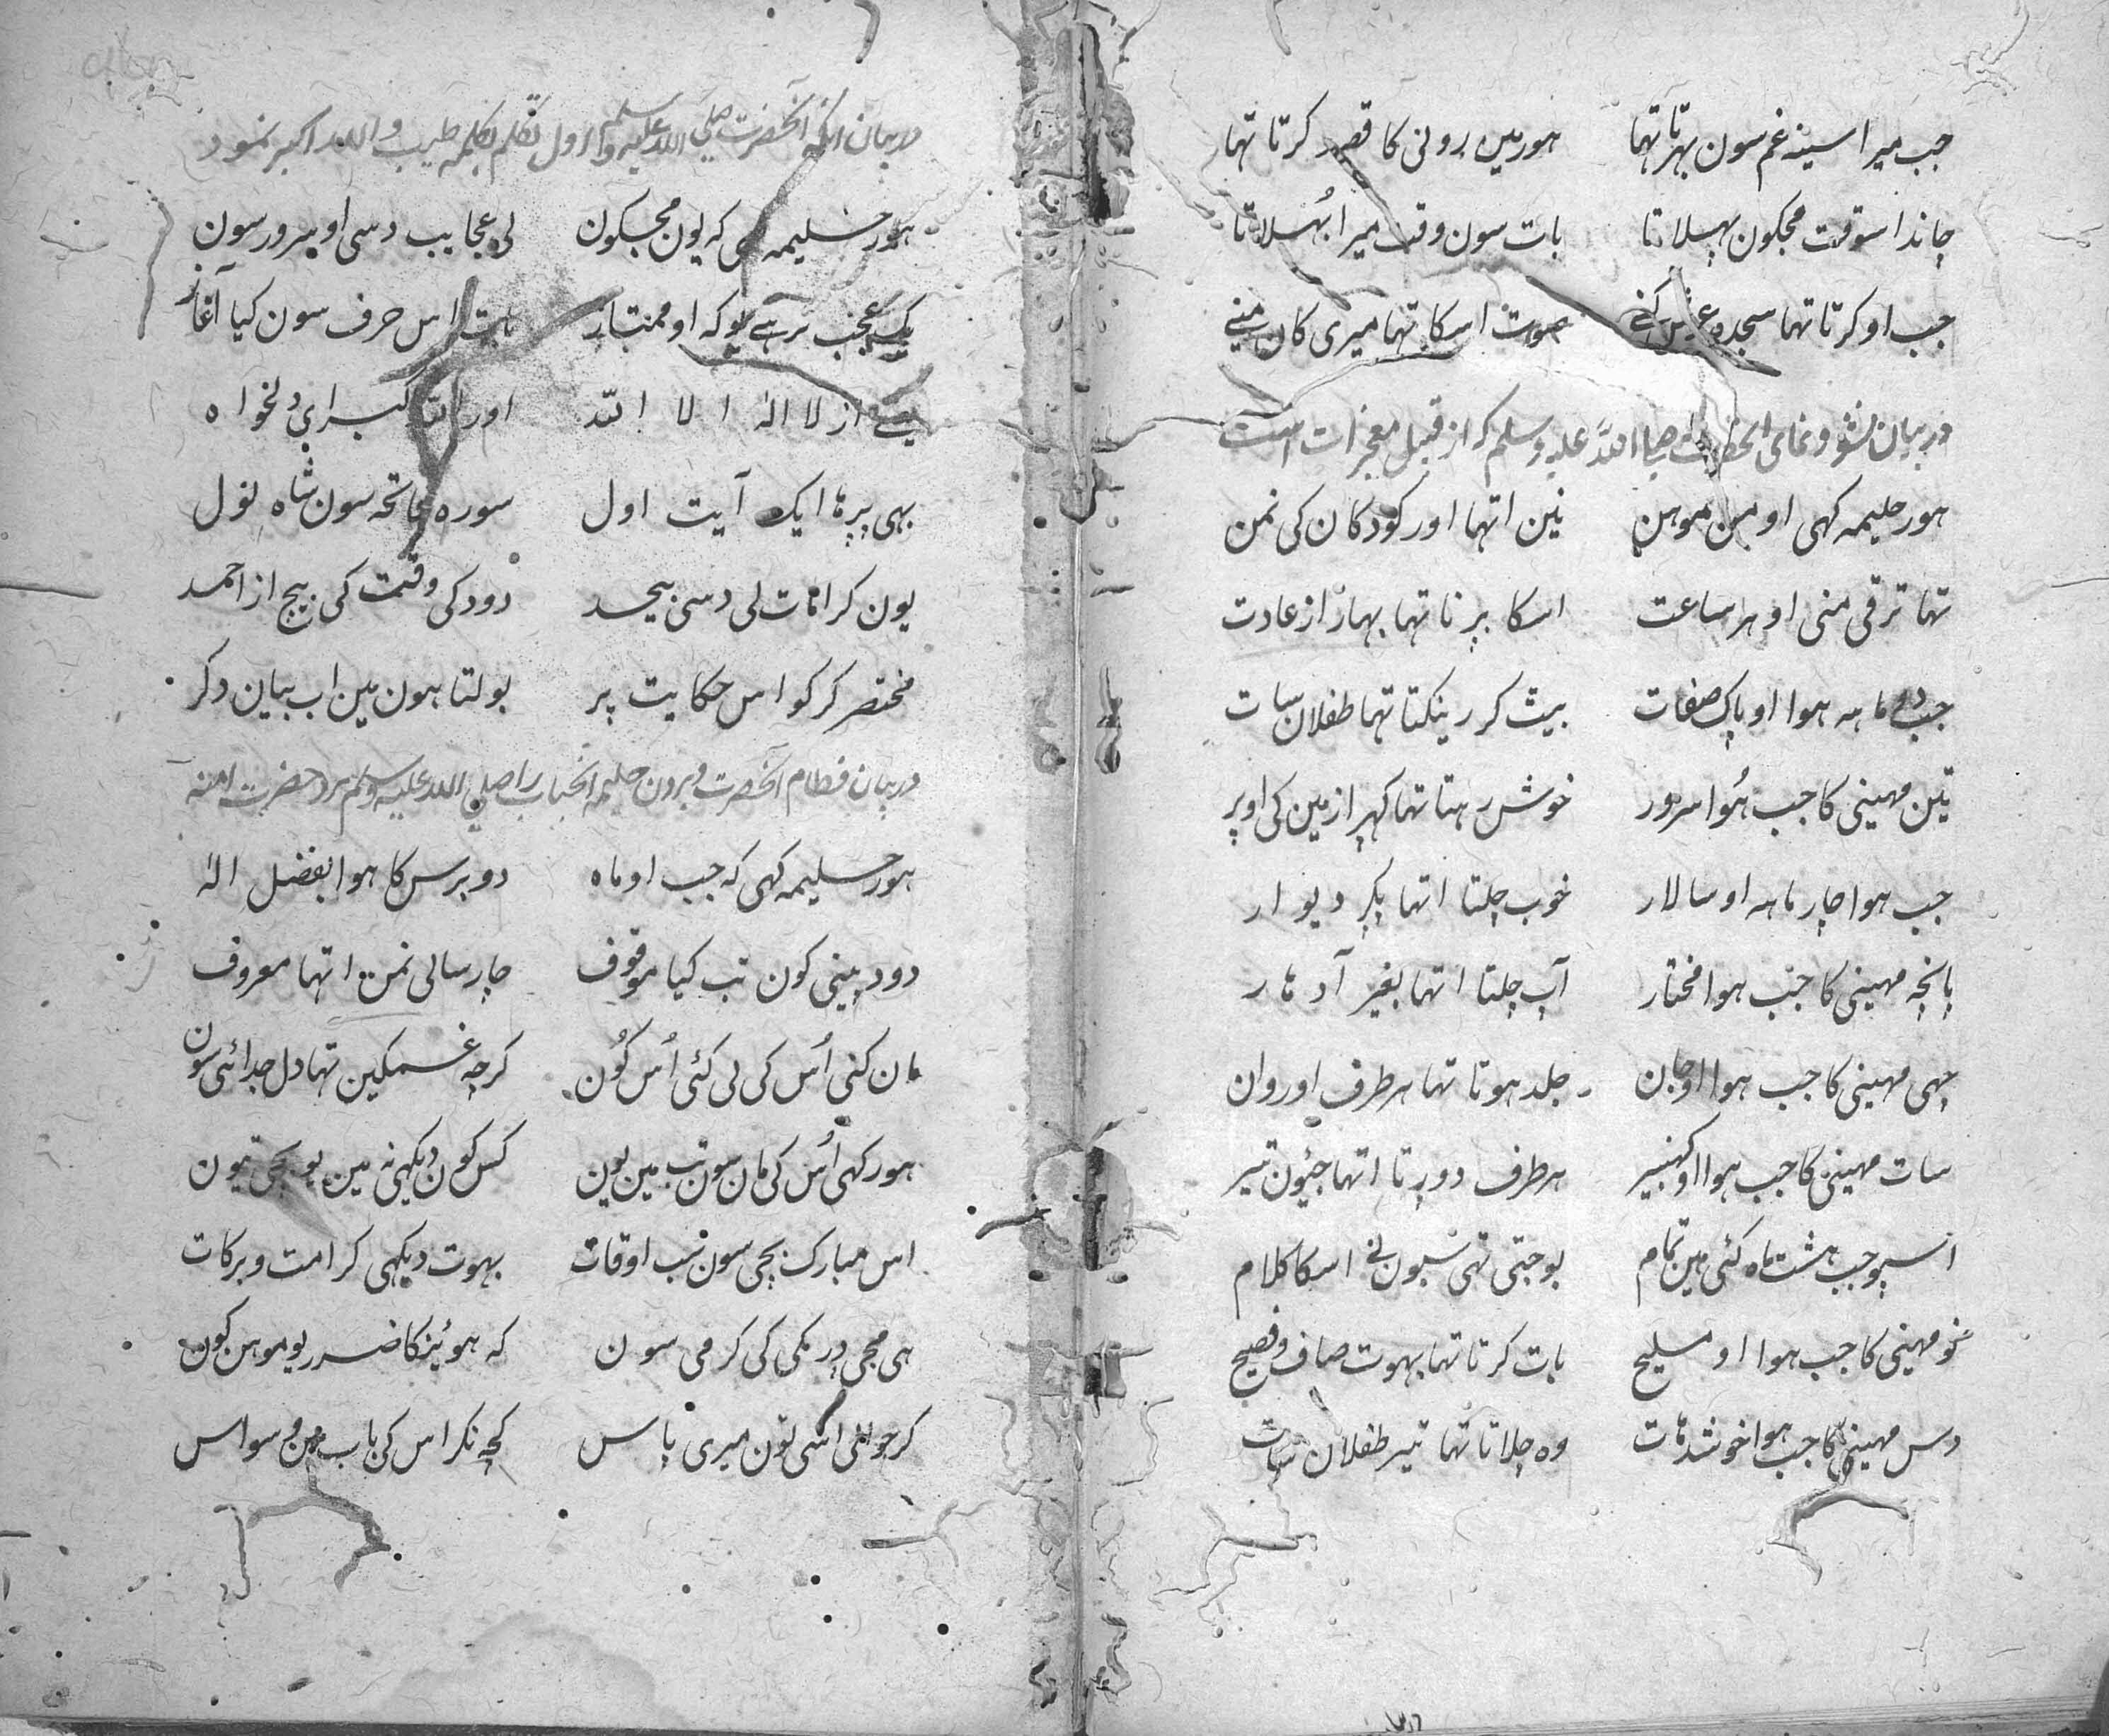 جب میرا سینہ غم سون بہرتا تہا ہور میں رونی کا قصد کرتا تہا
چاند اسوقت مجکون پہسلاتا بات سون وقت میرا بُہسلاتا
جب او کرتا تہا سجدہ عرش کنے صوت اسکا تہا میری کان منے
در بیان نشو و نمای انحضرت صلی اللہ علیہ وسلم کہ از قبیل معجزات است
ہور حلیمہ کہی او من موہن نین اتہا اور کودکان کی نمن
تہا ترقی منی او ہر ساعت اسکا برنا تہا بہار از عادت
جب دو ماہہ ہوا او پاک صفات بیٹ کر رینکتا تہا طفلان سات
تین مہینی کا جب ہُوا سرور خوش رہتا تہا کہرا زمین کی اوپر
جب ہوا چار ماہہ او سالار خوب چلتا اتہا پکر دیوار
پانچہ مہینی کا جب ہوا مختار آپ چلتا اتہا بغیر آدہار
چہی مہینی کا جب ہوا او جان جلد ہوتا تہا ہر طرف او روان
سات مہینی کا جب ہوا او کہنبیر ہر طرف دورتا اتہا جیُون تیر
اسپو جب ہشت ماہ کئی ہین تمام بوجتی تہی سبون نے اسکا کلام
نو مہینی کا جب ہوا او ملیح بات کرتا تہا بہوت صاف و فصیح
دس مہینی کا جب ہوا خوشذات وہ چلاتا تہا تیر طفلان سات
در بیان انکہ آنحضرت صلی اللہ علیہ وسلم اول تکلم بکلمہ طیب و اللہ اکبر نمود
ہور حلیمہ کہی کہ یون مجکون لی عجایب دسی او سرور سون
یک عجب ہے یو کہ او ممتاز بات اس حرف سون کیا آغاز
یعنے از لا الہ الا اللہ اور اللہ اکبر ای دلخواہ
بہی پرہا ایک آیت اول سورہ فاتحہ سون شاہ نول
یون کرامات لی دسی بیحد دود کی وقت کی بیچ از احمد
مختصر کر کو اس حکایت پر بولتا ہون مین اب بیان دکر
در بیان فطام آنحضرت و بردن حلیمہ آنجناب را صلی اللہ علیہ وسلم نزد حضرت امنہ
ہور حلیمہ کہی کہ جب او ماہ دو برس کا ہوا بفضل الہ
دود پینی کون تب کیا موقوف چار سالی نمن اتہا معروف
مان کنی اُس کی لی کئی اُس کُون کرچہ غمکین تہا دل جدائی سون
ہور کہی اُس کی مان سون تب مین یون کس کون دیکہی نہ مین یو بچی تیون
اس مبارک بچی سون سب اوقات بہوت دیکہی کرامت و برکات
ہی مجی در مکی کی کرمی سون کہ ہوئینکا ضرر یو موہن کون
کر حوالی اسی تون میری پاس کچہ نکر اس کی باب مین وسواس